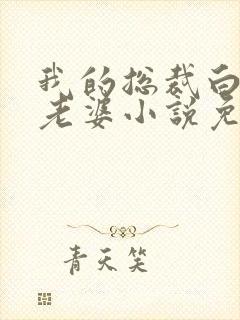 我的总裁白
老婆小说免
青天笑